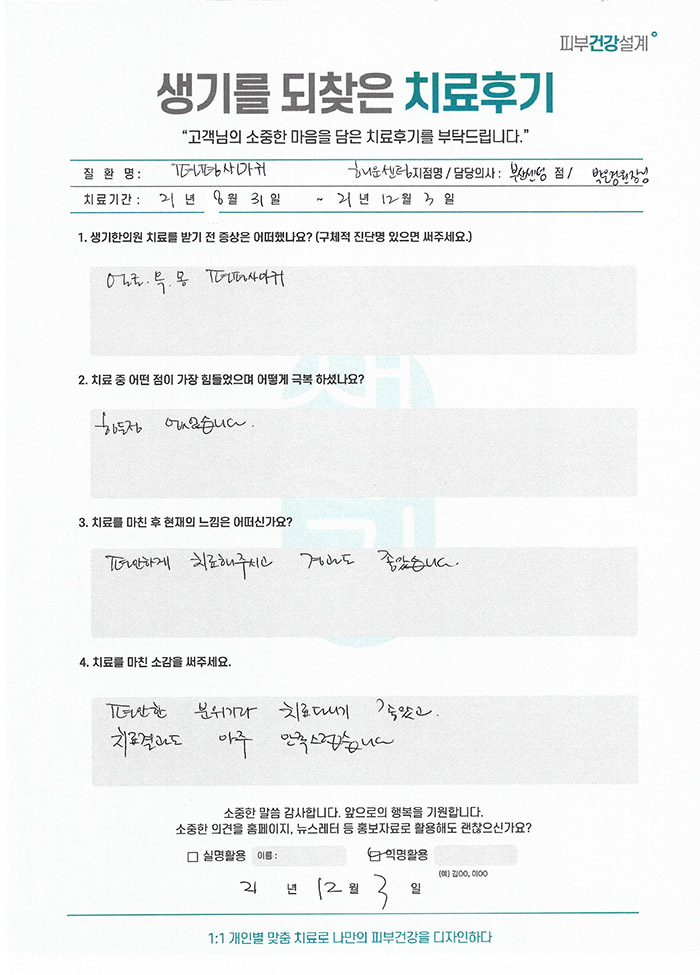 피부건강설계
생기를 되찾은 치료후기
"고객님의 소중한 마음을 담은 치료후기를 부탁드립니다."
질 환 명: 편평사마귀 해운센텀 지점명 / 담당의사 : 부산센텀 점 / 박 원장님
치료기간 : 21 년 8 월 31 일 ~ 21 년 12 월 3 일
1. 생기한의원 치료를 받기 전 증상은 어떠했나요? (구체적 진단명 있으면 써주세요.)
얼굴. 목. 몸 편평사마귀
2. 치료 중 어떤 점이 가장 힘들었으며 어떻게 극복 하셨나요?
힘든점 없었습니다.
3. 치료를 마친 후 현재의 느낌은 어떠신가요?
편안하게 치료해주시고 경과도 좋았습니다.
4. 치료를 마친 소감을 써주세요.
편안한 분위기라 치료다니기 좋았고.
치료결과도 아주 만족스럽습니다
소중한 말씀 감사합니다. 앞으로의 행복을 기원합니다.
소중한 의견을 홈페이지, 뉴스레터 등 홍보자료로 활용해도 괜찮으신가요?
실명활용 이름 : 익명활용
(예) 김OO, 이OO
21 년 12 월 3 일
1:1 개인별 맞춤 치료로 나만의 피부건강을 디자인하다